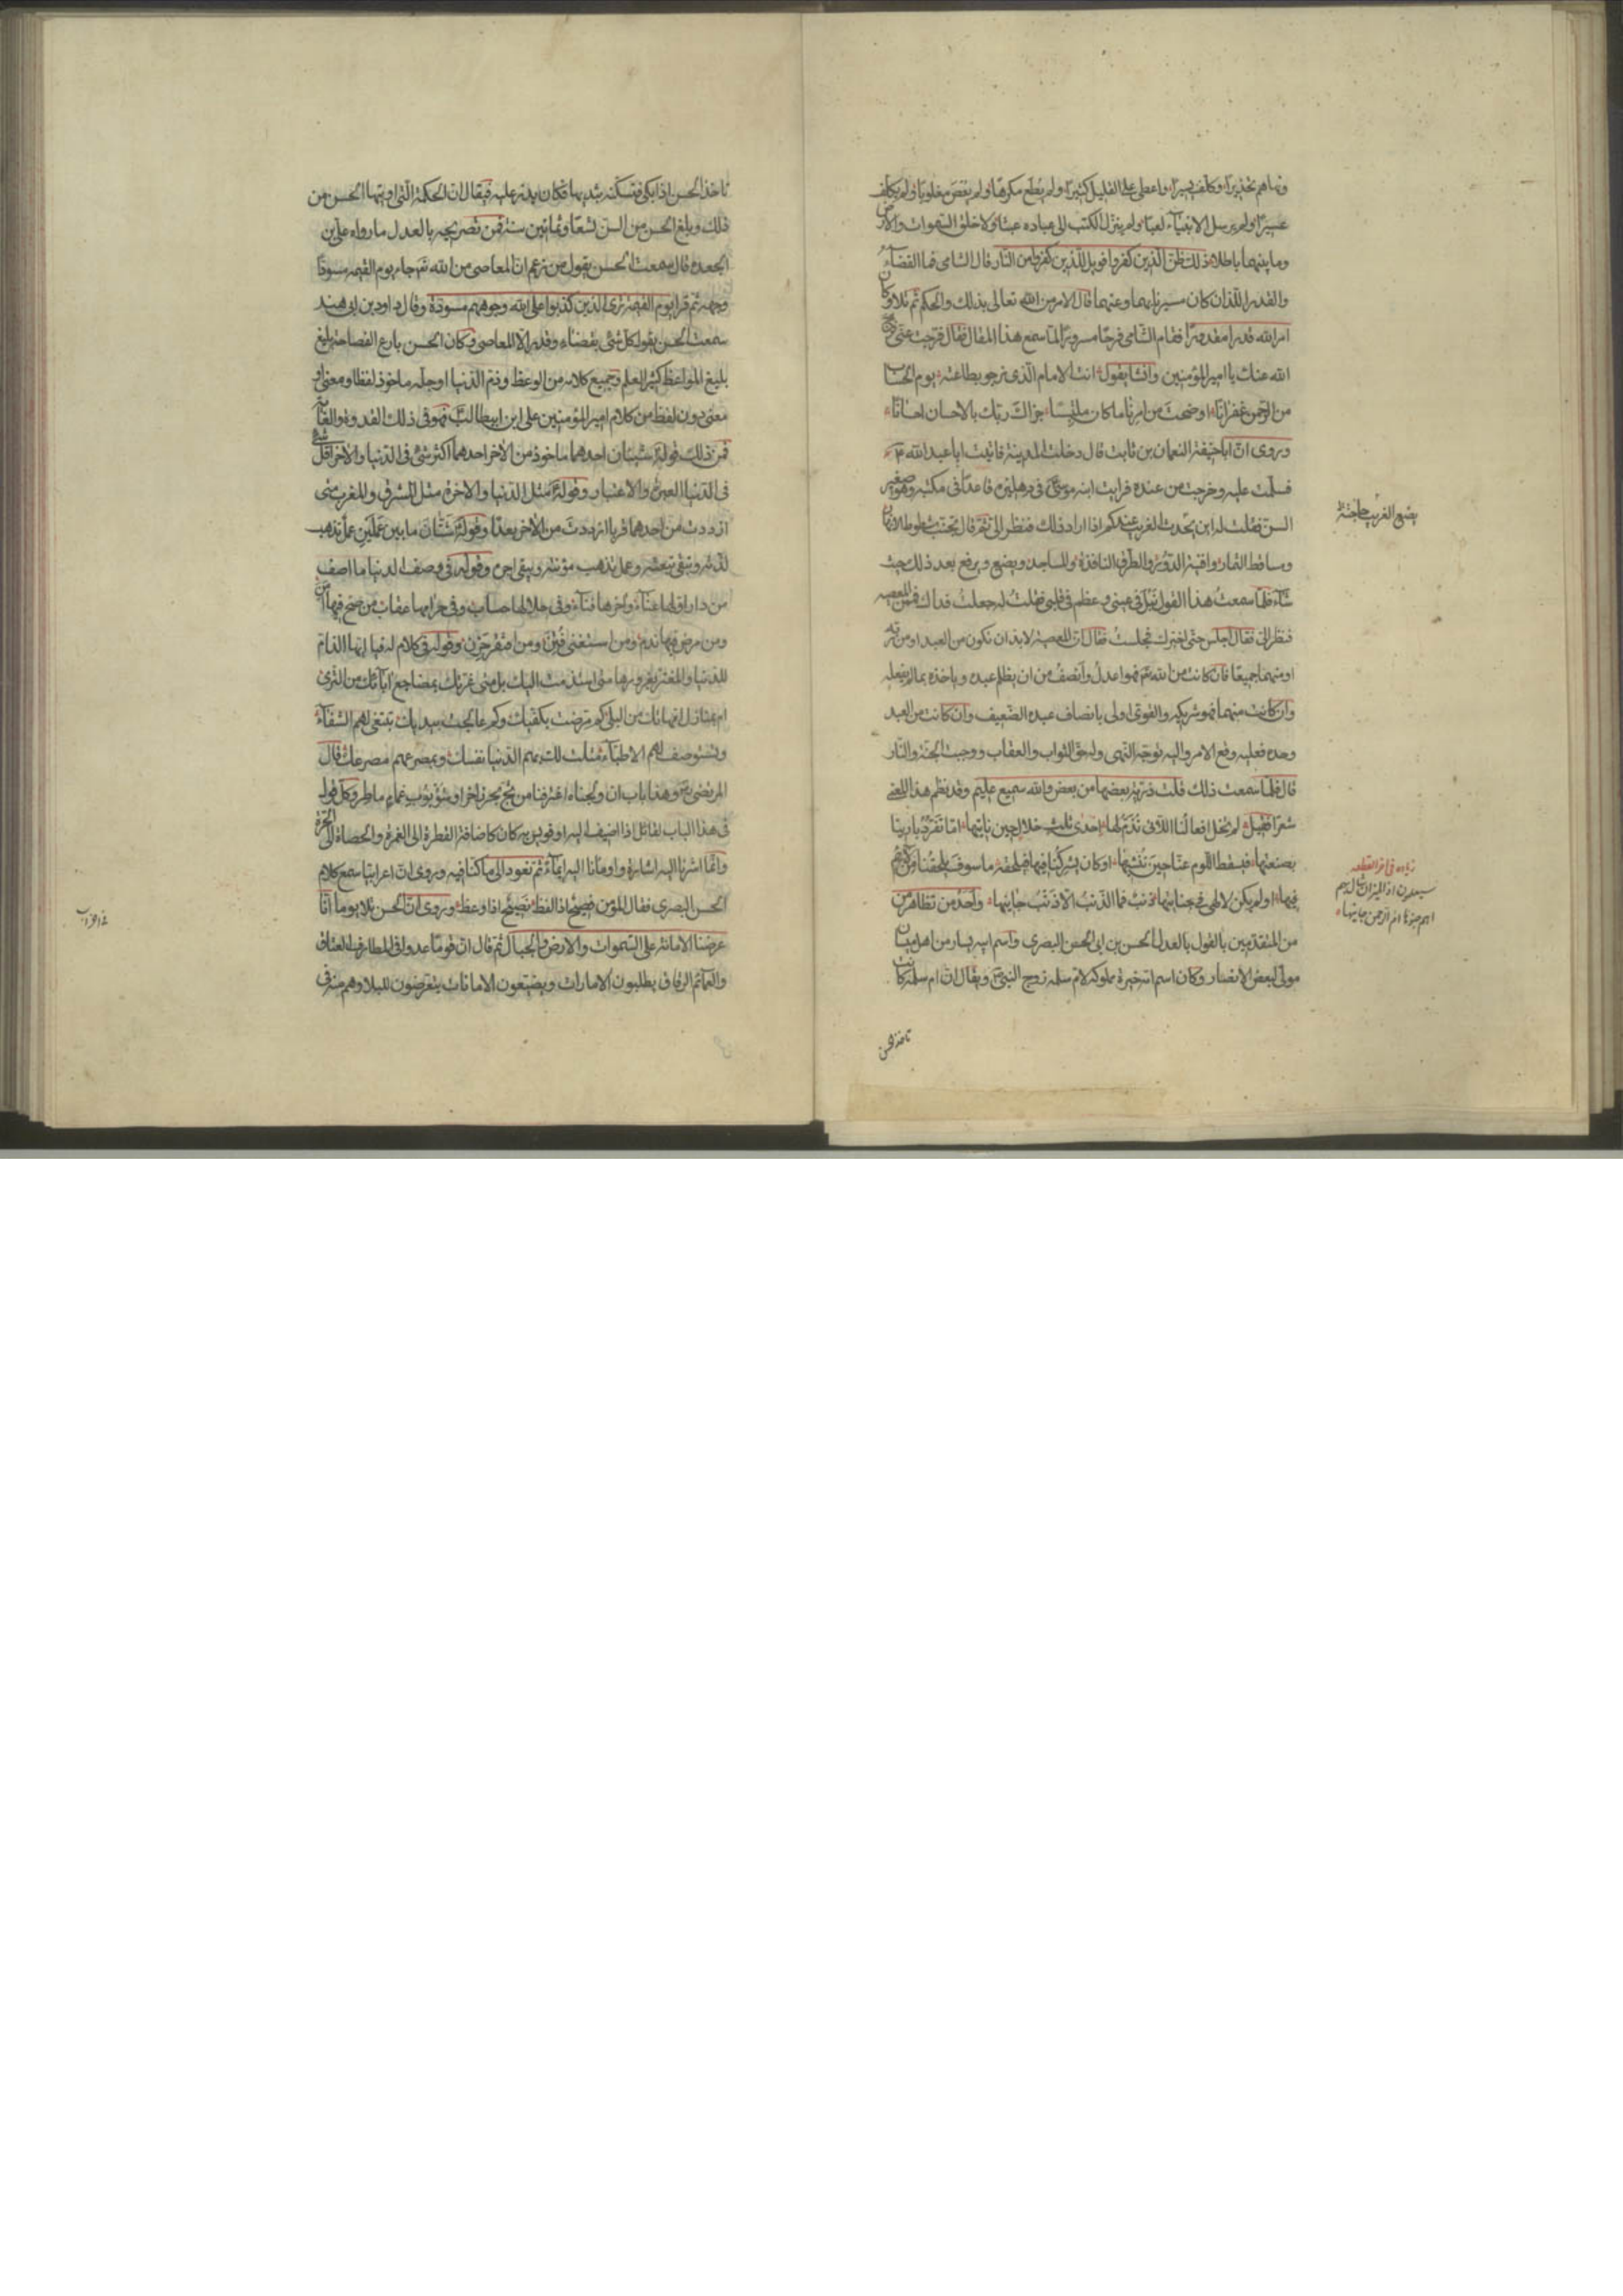 ونهاهم تحذيرا وكلف يسيرا واعطى على القليل كثيرا ولم يطع مكرها ولم يعص مغلوبا ولم يكلف
عسيرا ولم يرسل الانبياء لعبا ولم ينزل الكتب الى عباده عبثا ولا خلق السموات والارض
وما بينهما باطلا ذلك ظن الذين كفروا فويل للذين كفروا من النار قال الشامى فما القضاء
والقدر اللذان كان مسيرنا بهما وعنهما قال الامر من الله تعالى بذلك والحكم ثم تلا وكان
امر الله قدرا مقدورا فقام الشامى فرحا مسرورا لما سمع هذا المقال فقال فرجت عنى فرج
الله عنك يا امير المؤمنين وانشا يقول انت الامام الذى نرجو بطاعته يوم الحساب
من الرحمن غفرانا اوضحت من امرنا ما كان ملتبسا جزاك ربك بالاحسان احسانا
وروى ان ابا حنيفة النعمان بن ثابت قال دخلت المدينة فاتيت ابا عبد الله ع
فسلمت عليه وخرجت من عنده فرايت ابنه موسى ع فى دهليزه قاعدا فى مكتبه وهو صغير
السن فقلت له اين يحدث الغريب عندكم اذا اراد ذلك فنظر الى ثم قال يجتنب شطوط الانهار
ومساقط الثمار وافنية الدور والطرق النافذة والمساجد ويضع ويرفع بعد ذلك حيث
شاء فلما سمعت هذا القول نبل فى عينى وعظم فى قلبى فقلت له جعلت فداك فممن المعصية
فنظر الى فقال اجلس حتى اخبرك فجلست فقال ان المعصية لا بد ان تكون من العبد او من ربه
او منهما جميعا فان كانت من الله تع فهو اعدل وانصف من ان يظلم عبده وياخذه بما لم يفعله
وان كانت منهما فهو شريكه والقوى اولى بانصاف عبده الضعيف وان كانت من العبد
وحده فعليه وقع الامر واليه توجه النهى وله حق الثواب والعقاب ووجبت الجنة والنار
قال فلما سمعت ذلك قلت ذرية بعضها من بعض والله سميع عليم وقد نظم هذا المعنى
شعرا فقيل لم تخل افعالنا اللاتى نذم لها احدى ثلث خلال حين ناتيها اما تفرد بارينا
بصنعتها فيسقط اللوم عنا حين ننشيها او كان يشركنا فيها فيلحقه ما سوف يلحقنا من لائم
فيها او لم يكن لالهى فى جنايتها ذنب فما الذنب الا ذنب جانيها واحد من تظاهر من
من المتقدمين بالقول بالعدل الحسن بن ابى الحسن البصرى واسم ابيه يسار من اهل ميسان
مولى لبعض الانصار وكان اسم امه خيرة مملوكة لام سلمة زوج النبى ص ويقال ان ام سلمة كانت
تاخذ الحسن
يضع الغريب حاجته
زيادة فى اخر القطعه
سيعلمون اذا الميزان شال بهم
اهم جنوها ام الرحمن جانيها
تاخذ الحسن اذا بكى فتسكته بثديها فكان يدر عليه فيقال ان الحكمة التى اوتيها الحسن من
ذلك وبلغ الحسن من السن تسعا وثمانين سنة فمن تصريحه بالعدل ما رواه على بن
الجعده قال سمعت الحسن يقول من زعم ان المعاصى من الله تع جاء يوم القيمه مسودا
وجهه ثم قرا يوم القيمة ترى الذين كذبوا على الله وجوههم مسودة وقال داود بن ابى هند
سمعت الحسن يقول كل شئ بقضاء وقدر الا المعاصى وكان الحسن بارع الفصاحة بليغ
بليغ المواعظ كثير العلم وجميع كلامه من الوعظ وذم الدنيا او جله ماخوذ لفظا ومعنى او
معنى دون لفظ من كلام امير المؤمنين على ابن ابيطالب ع فهو فى ذلك القدوة والغاية
فمن ذلك قوله ع شيئان احدهما ماخوذ من الاخر احدهما اكثر شئ فى الدنيا والاخر اقل شئ
فى الدنيا العبر والاعتبار وقوله ع مثل الدنيا والاخرة مثل المشرق والمغرب متى
ازددت من احدهما قربا ازددت من الاخر بعدا وقوله ع شتان ما بين عملين عمل تذهب
لذته وتبقى تبعته وعمل تذهب مؤنته ويبقى اجره وقوله ع فى وصف الدنيا ما اصف
من دار اولها عناء واخرها فناء وفى حلالها حساب وفى حرامها عقاب من صح فيها امن
ومن مرض فيها ندم ومن استغنى فتن ومن افتقر حزن وقوله ع فى كلام له فيا ايها الذام
للدنيا والمغتر بغرورها متى استذمت اليك بل متى غرتك بمضاجع آبائك من الثرى
ام بمنازل امهاتك من البلى كم مرضت بكفيك وكم عالجت بيديك تبتغى لهم الشفاء
وتستوصف لهم الاطباء مثلت لك بهم الدنيا نفسك وبمصرعهم مصرعك قال
المرتضى رض وهذا باب ان ولجناه اغترفنا من ثبج بحر زاخر او شؤبوب غمام ماطر وكل قول
فى هذا الباب لقائل اذا اضيف اليه او قويس به كان كاضافة القطرة الى الغمرة والحصاة الى الحرة
وانما اشرنا اليه اشارة واومانا اليه ايماء ثم نعود الى ما كنا فيه وروى ان اعرابيا سمع كلام
الحسن البصرى فقال المؤمن فصيح اذا لفظ نصيح اذا وعظ وروى ان الحسن تلا يوما انا
عرضنا الامانة على السموات والارض والجبال ثم قال ان قوما غدوا فى المطارف العتاق
والعمائم الرقاق يطلبون الامارات ويضيعون الامانات يتعرضون للبلا وهم منه فى